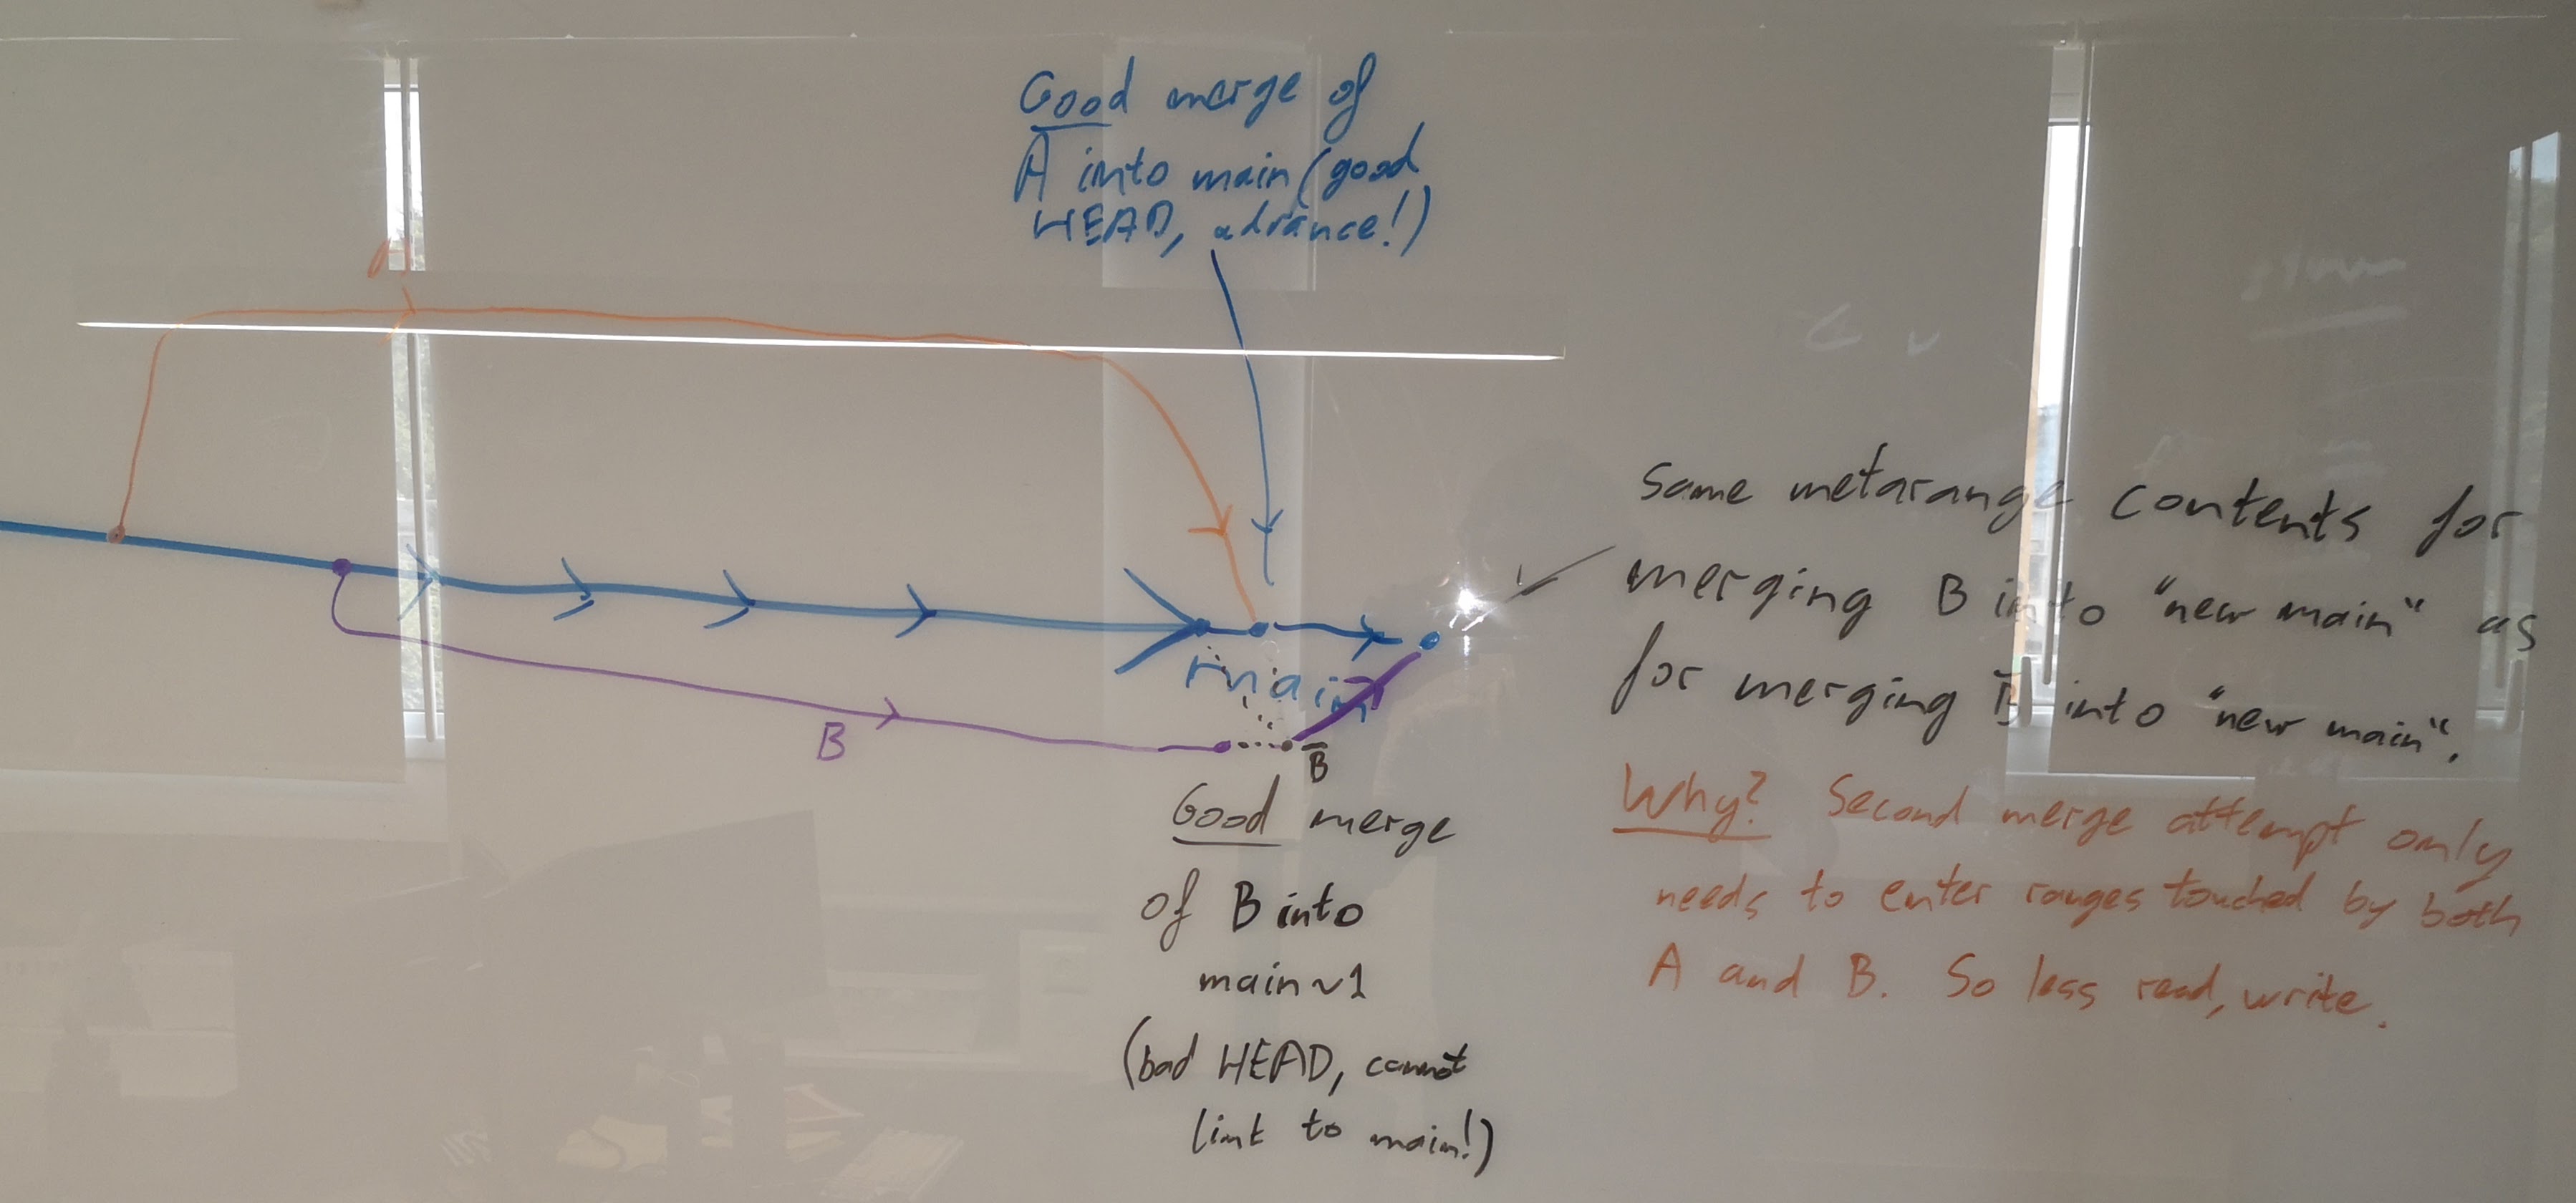 Good merge of
A into main (good
HEAD, advance!)
main
B
B̅
Good merge
of B into
main~1
(bad HEAD, cannot
link to main!)
Same metarange contents for
merging B into "new main" as
for merging B̅ into "new main".
Why? Second merge attempt only
needs to enter ranges touched by both
A and B. So less read, write.